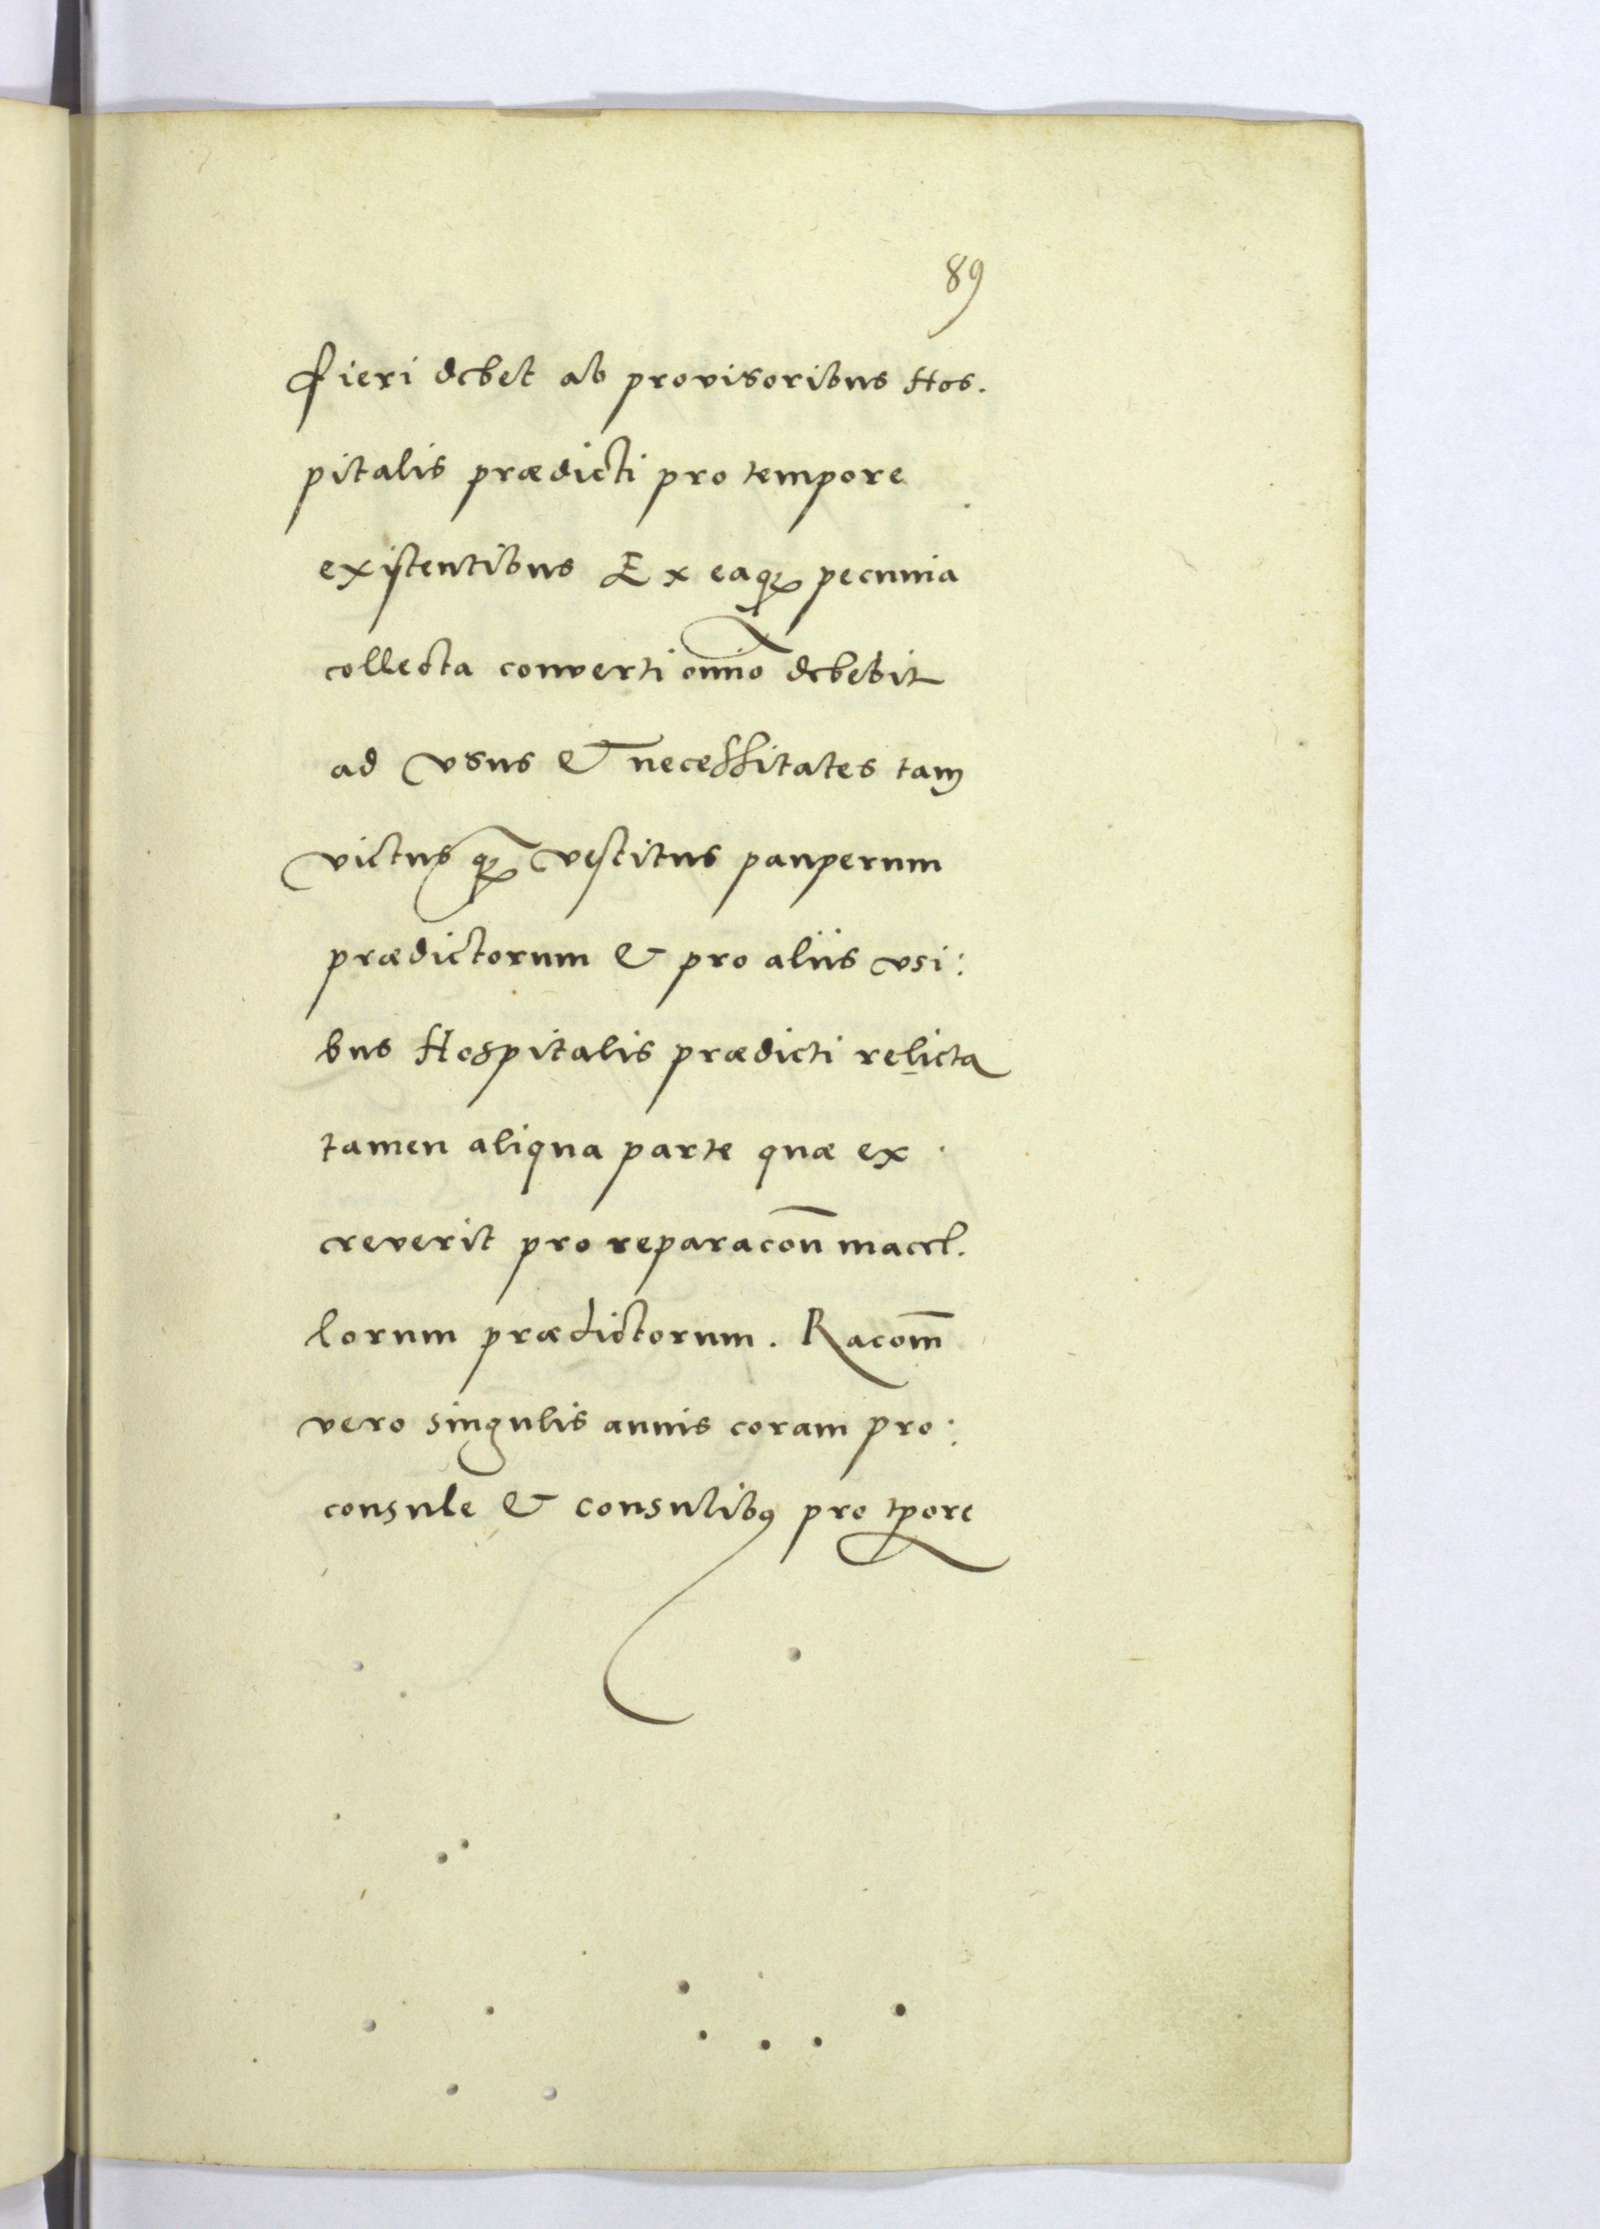 89
fieri debet ab provisoribus Hos.
pitalis prædicti pro tempore
existentibus Ex eaqꝫ pecunia
collecta converti om̅io debebit
ad vsus & necessitates tam
victus qꝫ vestitus pauperum
prædictorum & pro aliis vsi:
bus Hospitalis prædicti relicta
tamen aliqua parte quæ ex
creverit pro reparaco̅n macel.
lorum prædictorum. Raco̅m
vero singulis annis coram pro:
consule & consulibꝰ pro tꝑore